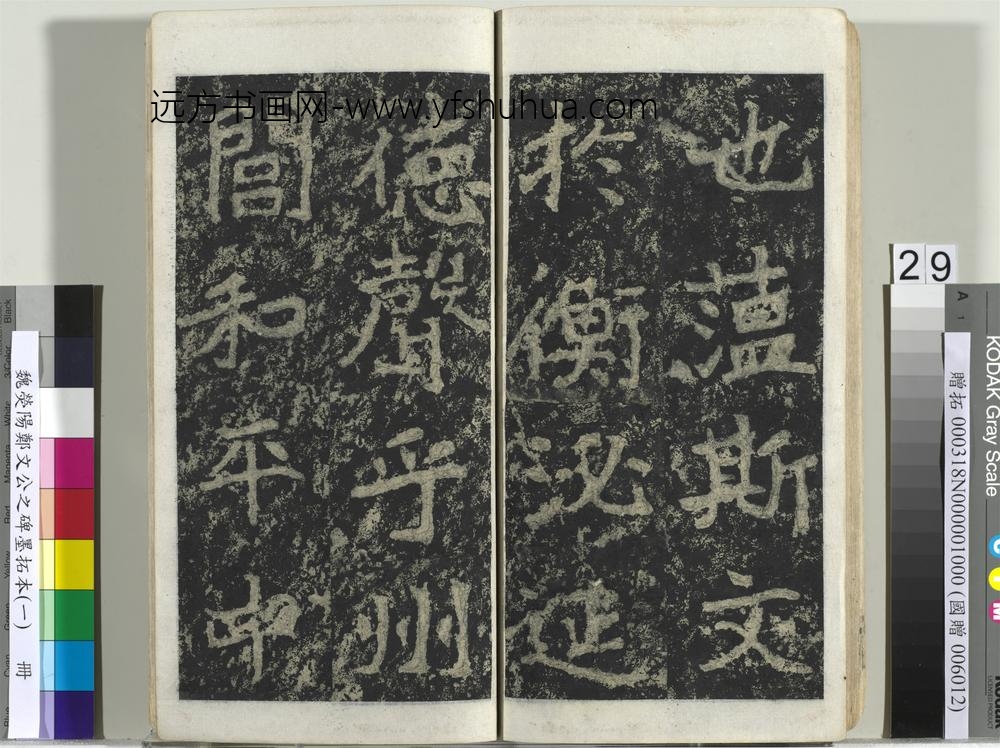 远方书画网-www.yfshuhua.com
也蕰斯文
於衡泌延
德聲乎州
閭和平中
29
魏滎陽鄭文公之碑墨拓本(一) 冊
贈拓 000318N000001000 (國贈 006012)
KODAK Gray Scale
A 1
Black
3/Color
White
Magenta
Red
Yellow
Green
Cyan
Blue
C
Y
M
LICENSED PRODUCT